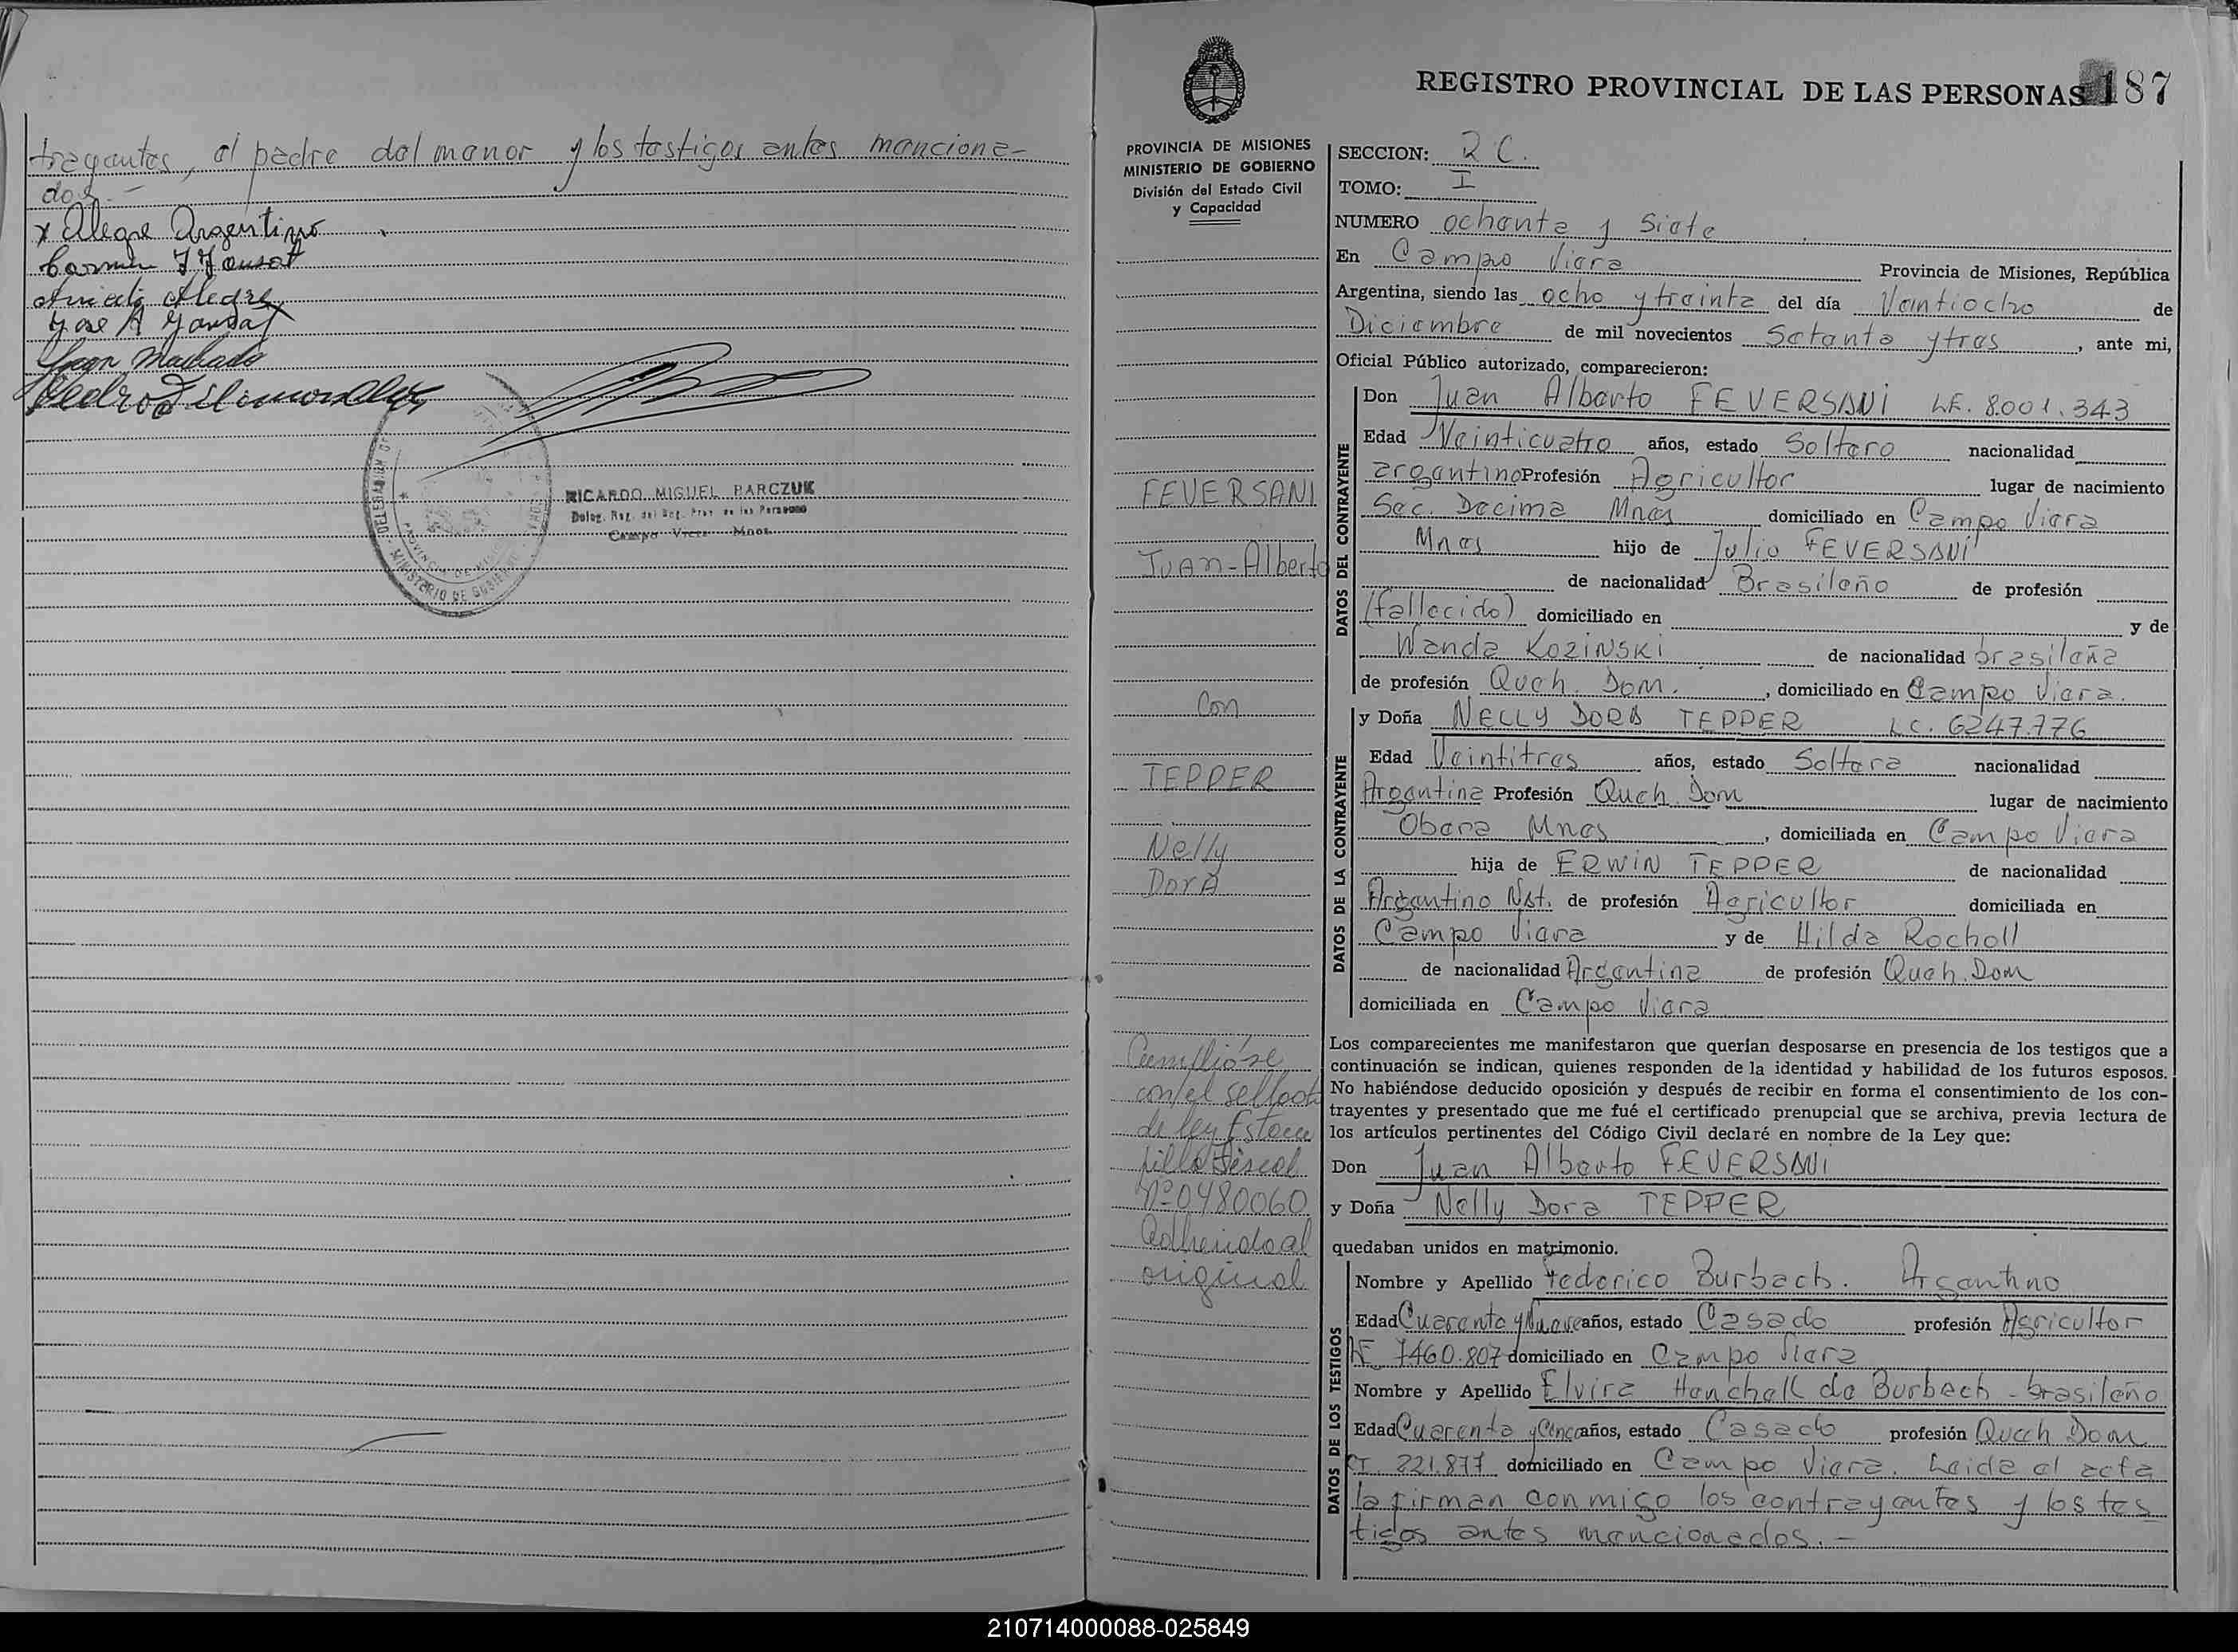 tregantes, el padre del menor y los testigos antes menciona-
dos.-
x Alegre Argentino
Carmen
Aniceto Alegre
Jose A
Juan Machado
Pedro
RICARDO MIGUEL PARCZUK
Deleg. Reg. del Reg. Prov. de las Personas
Campo Viera - Mnes.
MINISTERIO DE GOBIERNO
REGISTRO PROVINCIAL DE LAS PERSONAS 187
PROVINCIA DE MISIONES
MINISTERIO DE GOBIERNO
División del Estado Civil
y Capacidad
FEVERSANI
Juan-Alberto
Con
TEPPER
Nelly
Dora
Cumplióse
con el sellado
de ley Estam
pilla Fiscal
Nº 0480060
Adherido al
original
SECCION: R C.
TOMO: I
NUMERO ochenta y Siete
En Campo Viera Provincia de Misiones, República
Argentina, siendo las ocho y treinta del día Veintiocho de
Diciembre de mil novecientos Setenta y tres, ante mi,
Oficial Público autorizado, comparecieron:
DATOS DEL CONTRAYENTE
Don Juan Alberto FEVERSANI LE. 8.001.343
Edad Veinticuatro años, estado Soltero nacionalidad
argentino Profesión Agricultor lugar de nacimiento
Sec. Decima Mnes domiciliado en Campo Viera
Mnes hijo de Julio FEVERSANI
de nacionalidad Brasileño de profesión
(fallecido) domiciliado en y de
Wanda KOZINSKI de nacionalidad brasileña
de profesión Queh. Dom., domiciliado en Campo Viera.
DATOS DE LA CONTRAYENTE
y Doña NELLY DORA TEPPER LC. 6247.776
Edad Veintitres años, estado Soltera nacionalidad
Argentina Profesión Queh. Dom lugar de nacimiento
Obera Mnes, domiciliada en Campo Viera
hija de ERWIN TEPPER de nacionalidad
Argentino Nat. de profesión Agricultor domiciliada en
Campo Viera y de Hilda Rocholl
de nacionalidad Argentina de profesión Queh. Dom
domiciliada en Campo Viera
Los comparecientes me manifestaron que querían desposarse en presencia de los testigos que a
continuación se indican, quienes responden de la identidad y habilidad de los futuros esposos.
No habiéndose deducido oposición y después de recibir en forma el consentimiento de los con-
trayentes y presentado que me fué el certificado prenupcial que se archiva, previa lectura de
los artículos pertinentes del Código Civil declaré en nombre de la Ley que:
Don Juan Alberto FEVERSANI
y Doña Nelly Dora TEPPER
quedaban unidos en matrimonio.
DATOS DE LOS TESTIGOS
Nombre y Apellido Federico Burbach. Argentino
Edad Cuarenta y Nueve años, estado Casado profesión Agricultor
LE 7460.807 domiciliado en Campo Viera
Nombre y Apellido Elvira Henchell de Burbach - brasileño
Edad Cuarenta y Cinco años, estado Casado profesión Queh Dom
CI 221.877 domiciliado en Campo Viera. Leida el acta
la firman conmigo los contrayentes y los tes
tigos antes mencionados.-
210714000088-025849